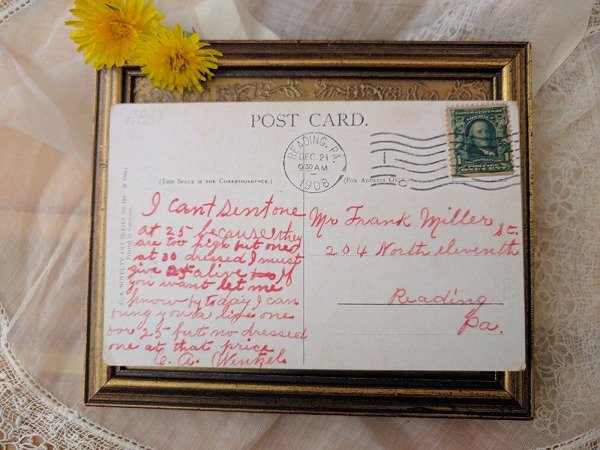 POST CARD.
READING, PA.
DEC 21
9 30 AM
1908
1
C
(THIS SPACE IS FOR CORRESPONDENCE.)
(FOR ADDRESS ONLY.)
I cant Sent one
at 25 because they
are too high but one
at 30 dressed I must
give alive If
you want let me
know by to day I can
bring you a live one
25 but no dressed
one at, that price
C. A. Wentzel
Mr Frank Miller
204 North eleventh St.
Reading
Pa.